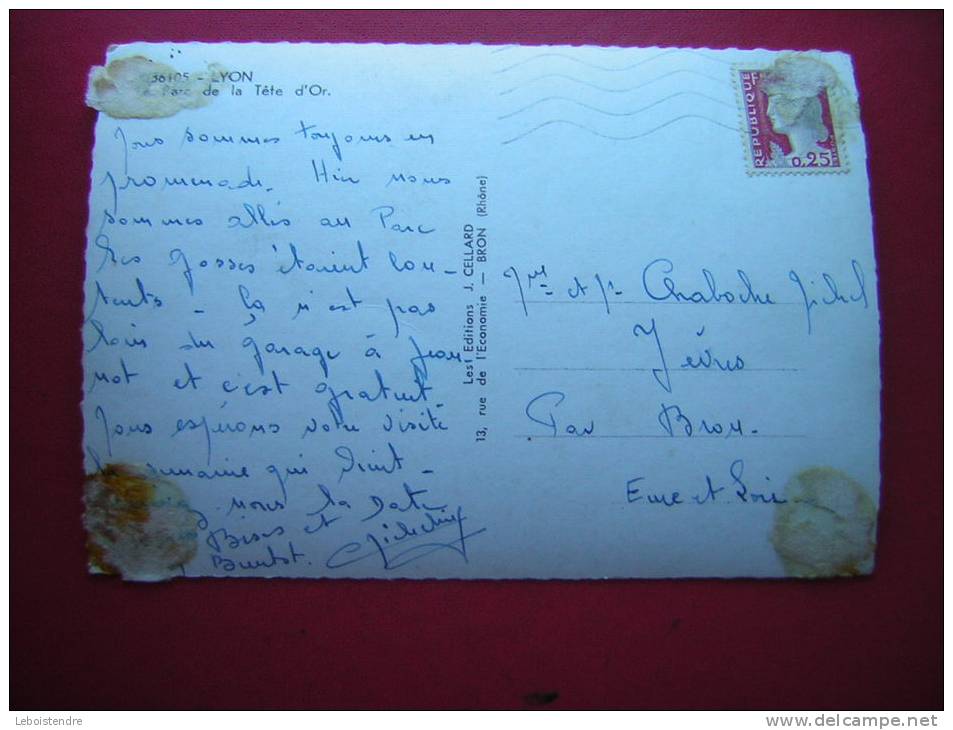 36105 - LYON
Parc de la Tête d'Or.
Nous sommes toujours en
promenade. Hier nous
sommes allés au Parc
Les gosses étaient con-
tents - Ça n'est pas
loin du garage à Jean
not et c'est gratuit.
Nous espérons votre visite
la semaine qui vient -
nous la Date
Bises et
Bientôt.
Les Editions J. CELLARD
13, rue de l'Economie — BRON (Rhône)
REPUBLIQUE
0,25
POSTES
et Chaboche Michel
Yèvres
Par Brou.
Eure et Loir
Leboistendre
www.delcampe.net